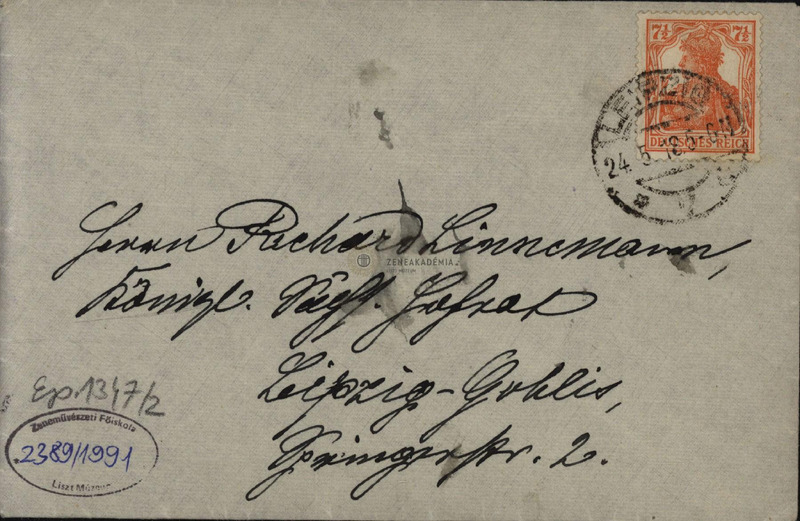 7½ 7½
DEUTSCHES REICH
LEIPZIG
24.5.18.5-6N
Herrn Richard Linnemann,
Königl. Sächs. Hofrat
ZENEAKADÉMIA
Leipzig-Gohlis,
Springerstr. 2.
Ep.1347/2
Zeneművészeti Főiskola
2389/1991
Liszt Múzeum